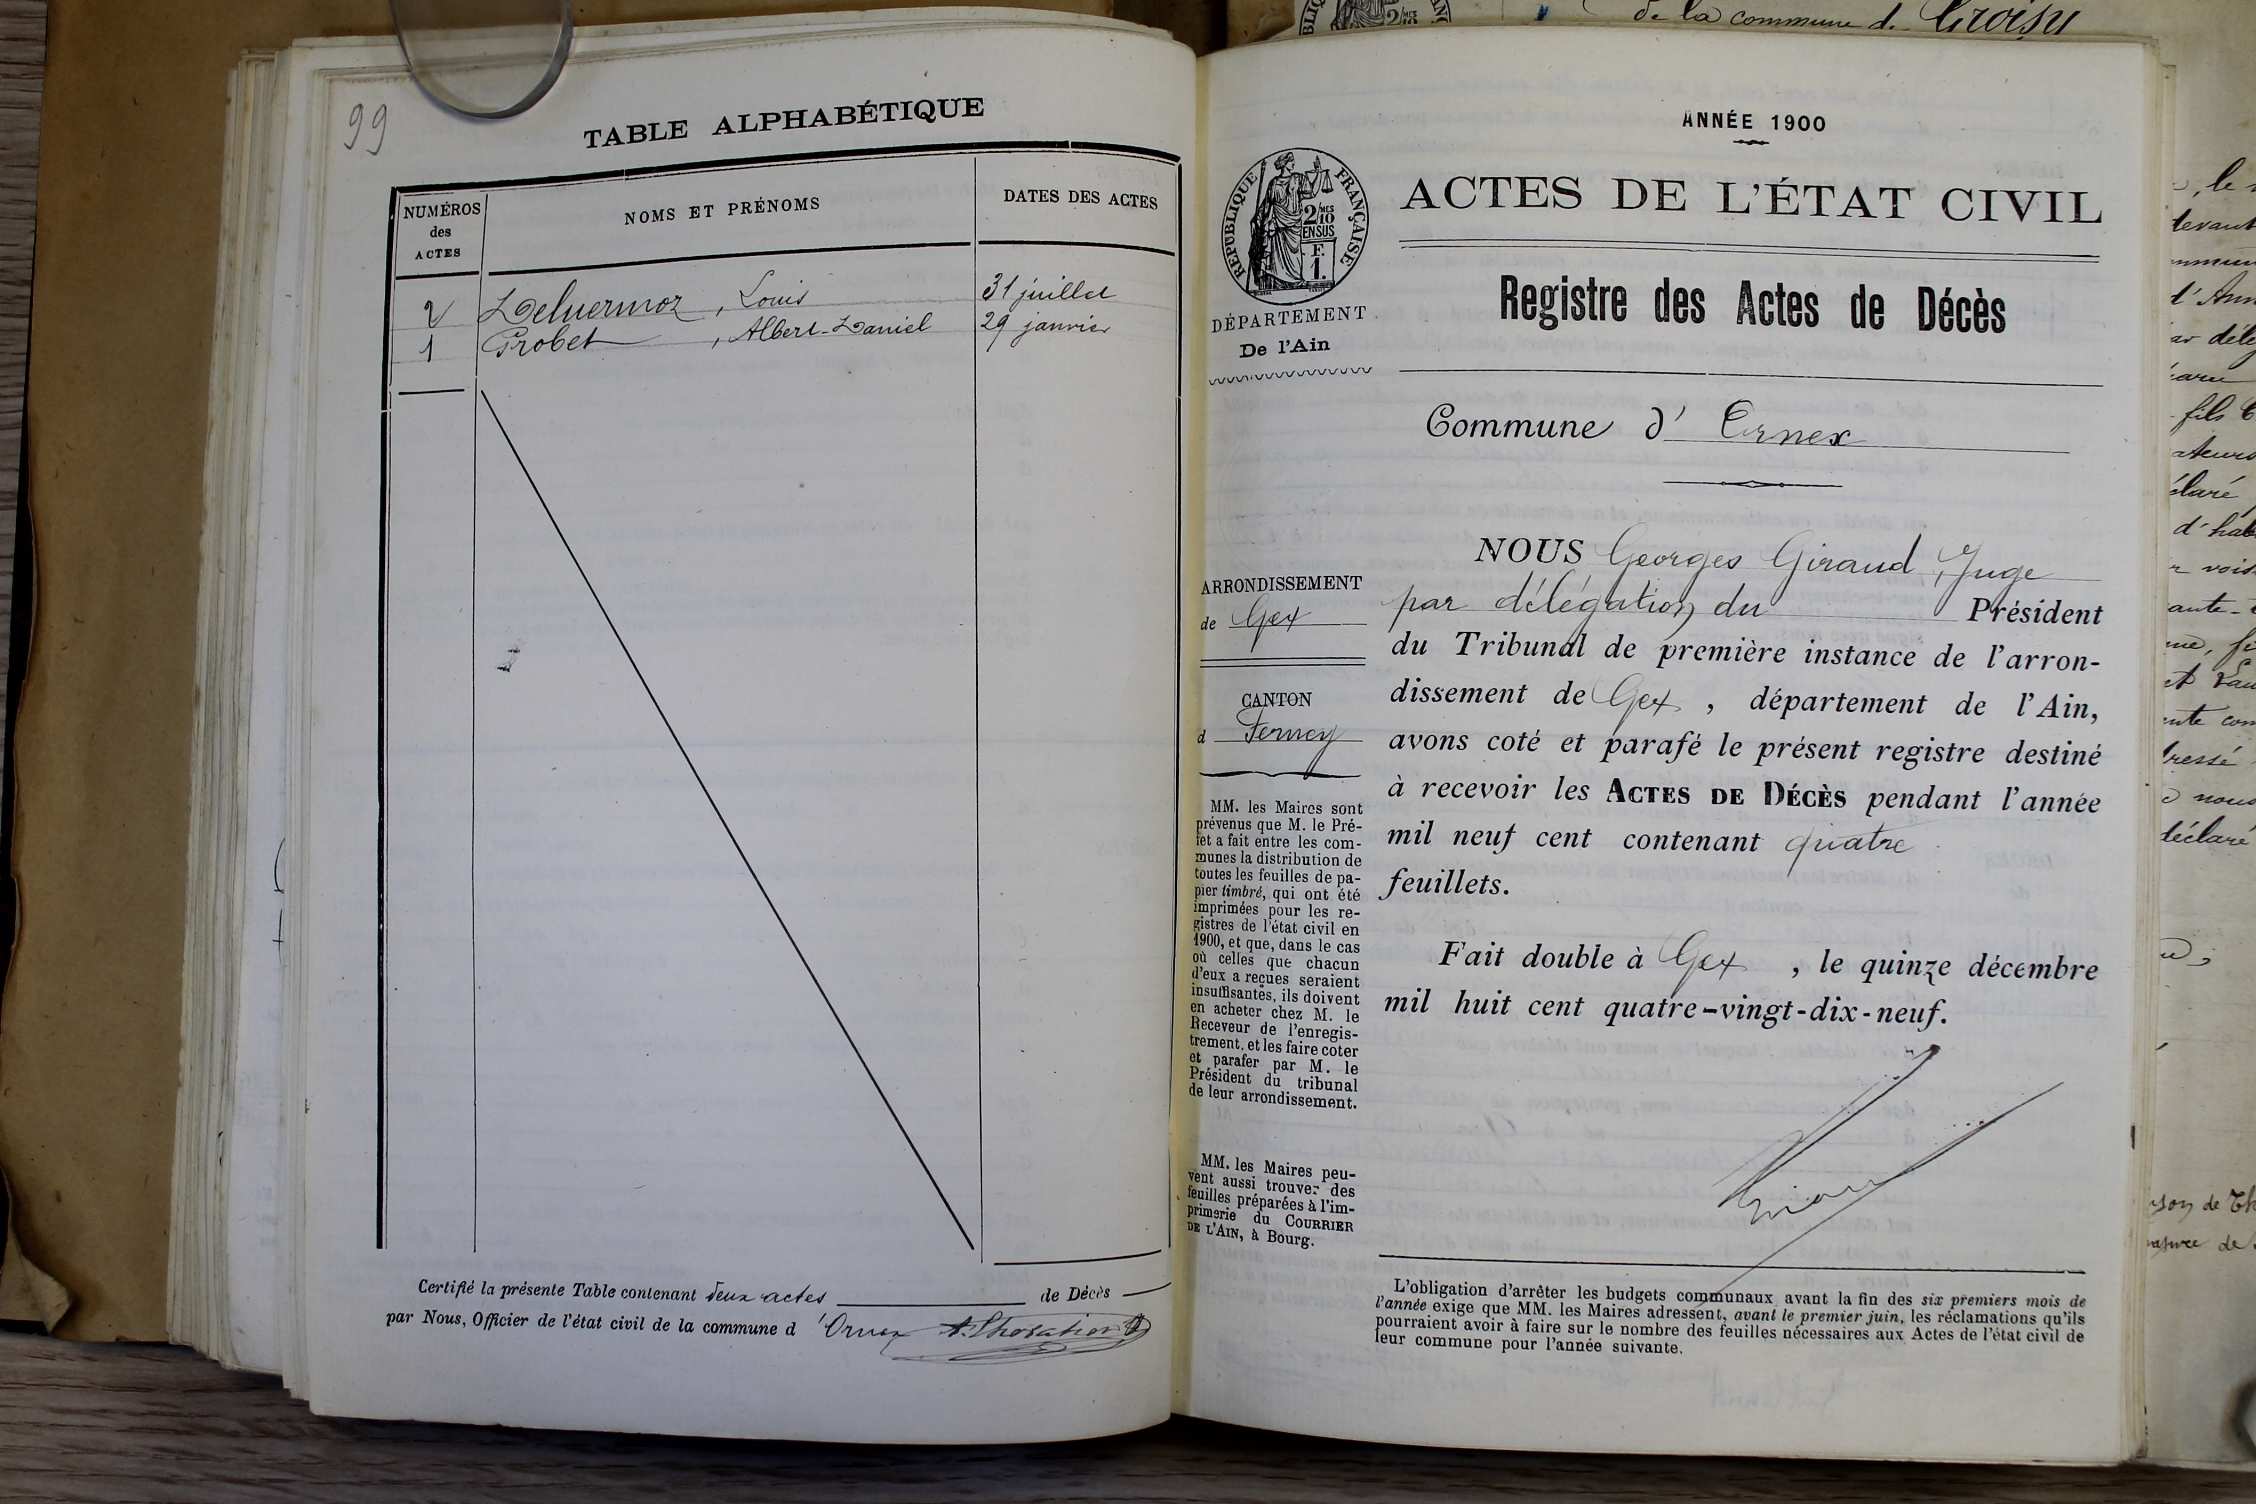 de la commune de Croisy
99
TABLE ALPHABÉTIQUE
NUMÉROS
des
ACTES
NOMS ET PRÉNOMS
DATES DES ACTES
2 Deluermoz, Louis 31 juillet
1 Grobet, Albert-Daniel 29 janvier
Certifié la présente Table contenant deux actes de Décès
par Nous, Officier de l'état civil de la commune d'Ornex
ANNÉE 1900
ACTES DE L'ÉTAT CIVIL
RÉPUBLIQUE FRANÇAISE
2/10MES
EN SUS
F.
1.
DÉPARTEMENT
De l'Ain
Registre des Actes de Décès
Commune d' Ornex
ARRONDISSEMENT
de Gex
CANTON
d Ferney
MM. les Maires sont
prévenus que M. le Pré-
fet a fait entre les com-
munes la distribution de
toutes les feuilles de pa-
pier timbré, qui ont été
imprimées pour les re-
gistres de l'état civil en
1900, et que, dans le cas
où celles que chacun
d'eux a reçues seraient
insuffisantes, ils doivent
en acheter chez M. le
Receveur de l'enregis-
trement, et les faire coter
et parafer par M. le
Président du tribunal
de leur arrondissement.
MM. les Maires peu-
vent aussi trouver des
feuilles préparées à l'im-
primerie du COURRIER
DE L'AIN, à Bourg.
NOUS Georges Giraud, Juge
par délégation du Président
du Tribunal de première instance de l'arron-
dissement de Gex, département de l'Ain,
avons coté et parafé le présent registre destiné
à recevoir les ACTES DE DÉCÈS pendant l'année
mil neuf cent contenant quatre
feuillets.
Fait double à Gex, le quinze décembre
mil huit cent quatre-vingt-dix-neuf.
L'obligation d'arrêter les budgets communaux avant la fin des six premiers mois de
l'année exige que MM. les Maires adressent, avant le premier juin, les réclamations qu'ils
pourraient avoir à faire sur le nombre des feuilles nécessaires aux Actes de l'état civil de
leur commune pour l'année suivante.